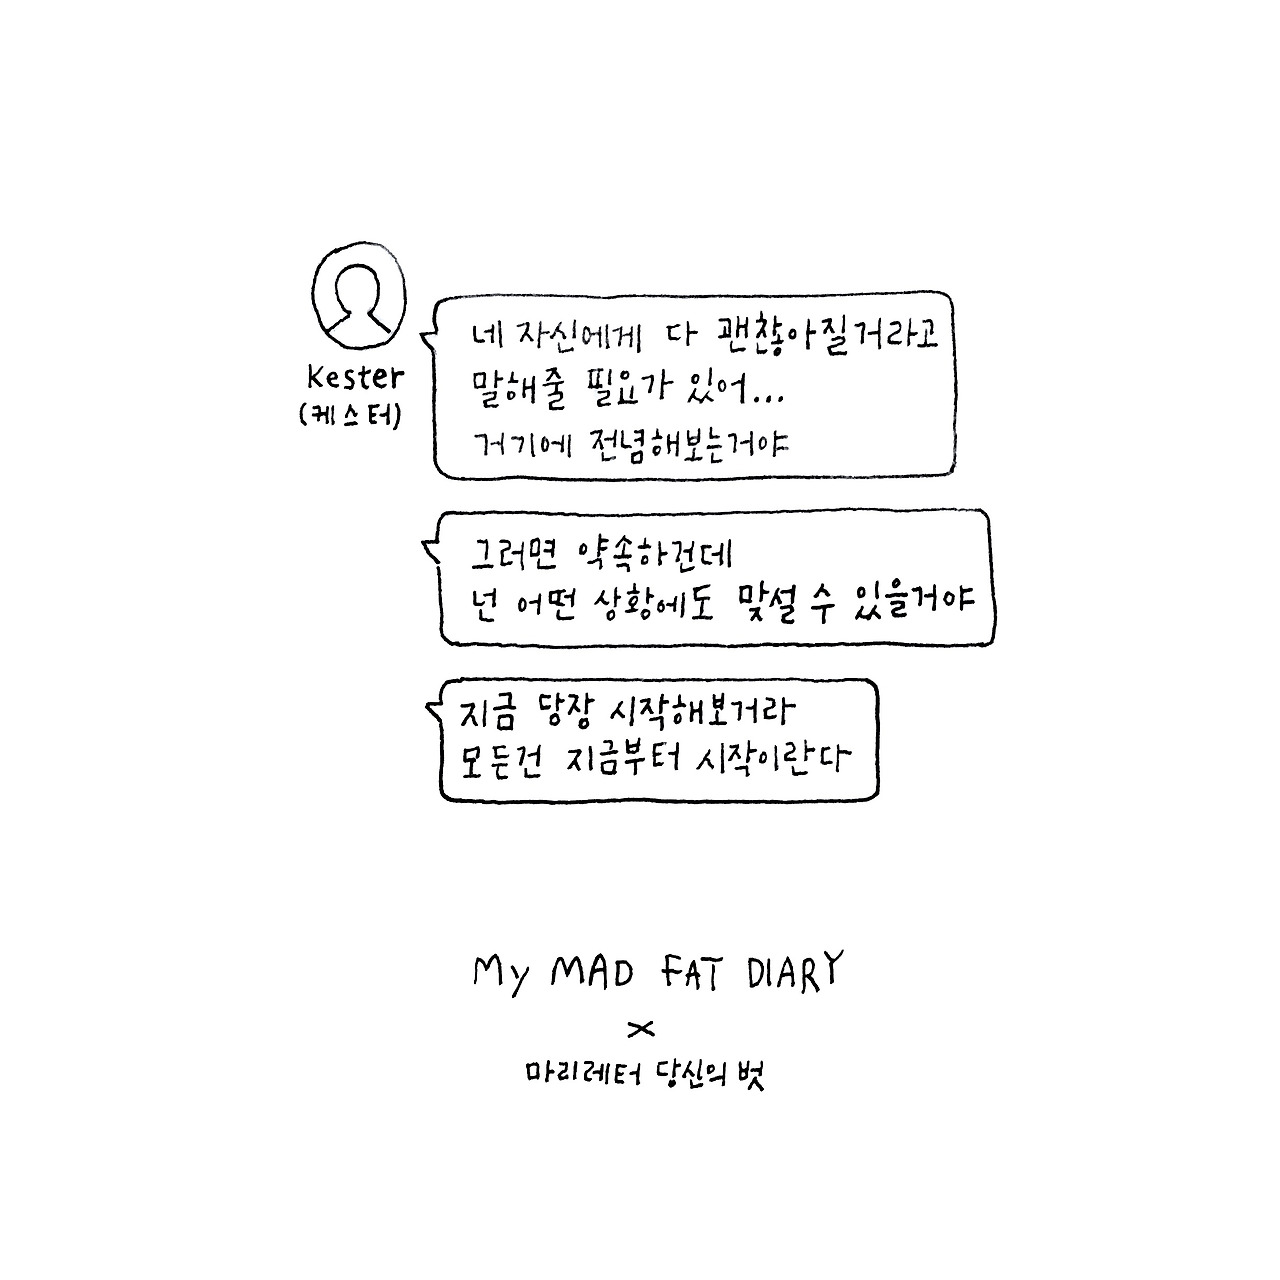 Kester
(케스터)
네 자신에게 다 괜찮아질거라고
말해줄 필요가 있어...
거기에 전념해보는거야
그러면 약속하건데
넌 어떤 상황에도 맞설 수 있을거야
지금 당장 시작해보거라
모든건 지금부터 시작이란다
My MAD FAT DIARY
×
마리레터 당신의 벗